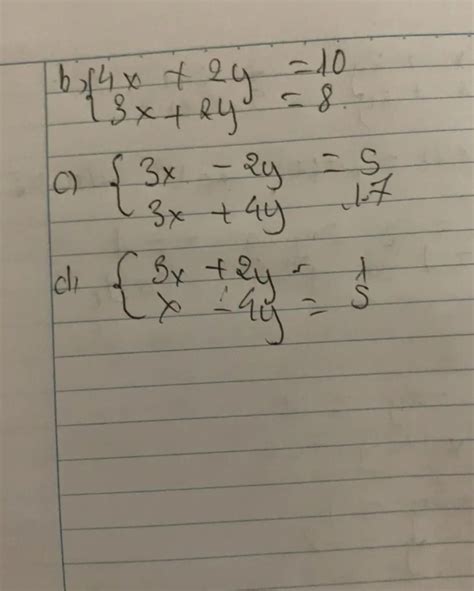 b) { 4x + 2y = 10
3x + 2y = 8.
c) { 3x - 2y = 5
3x + 4y
d) { 3x + 2y = 1
x - 4y = 5